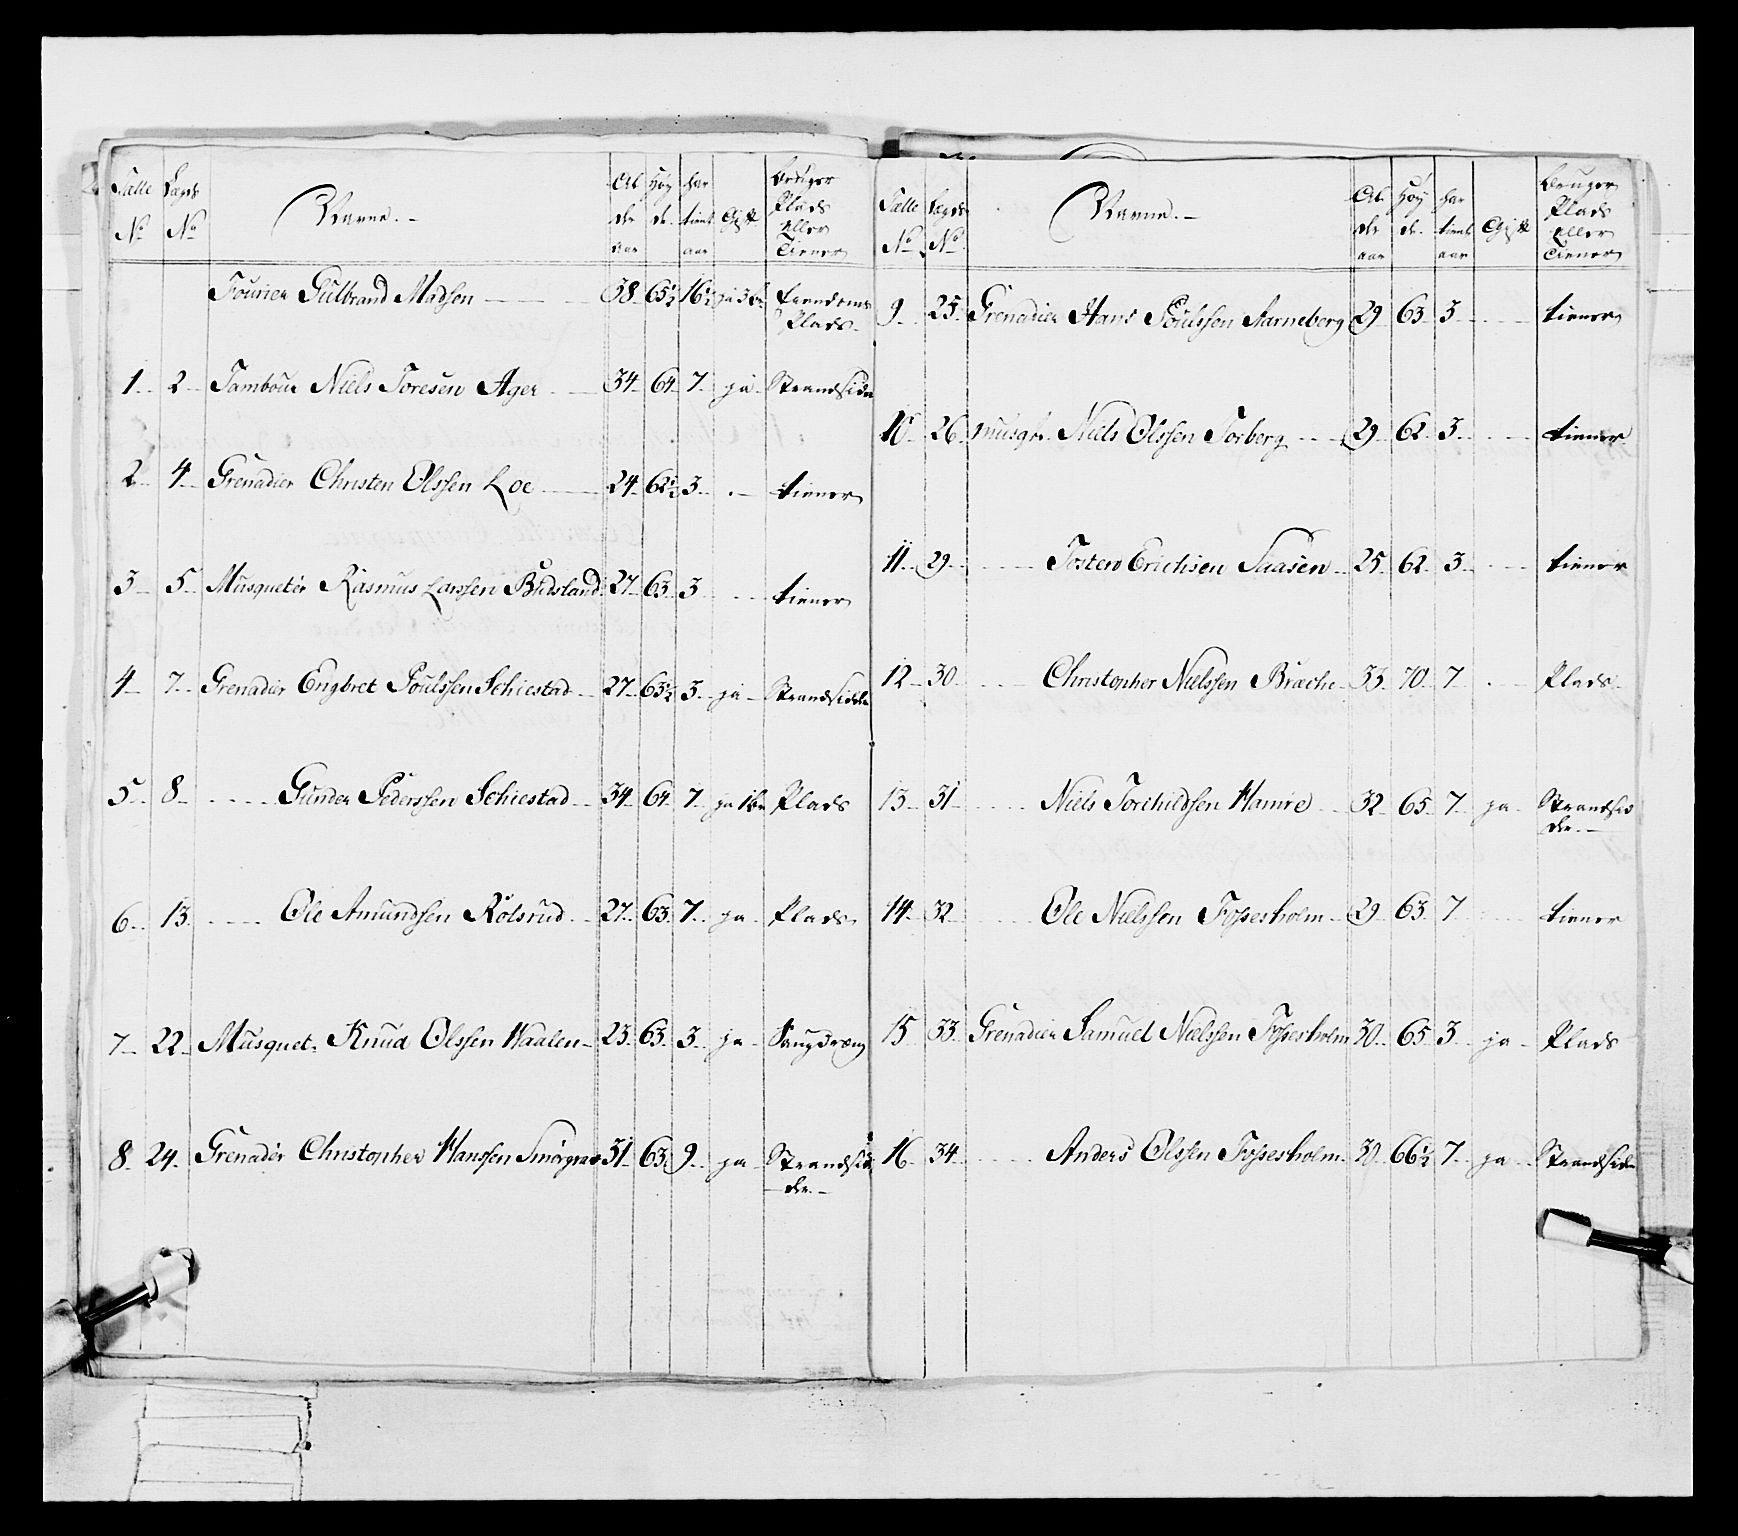 Tælle No Lægds No Navne.- Al der aar Høy de. har tient aar Gift Bruger Plads eller Tiener
Fourier Gulbrand Madsen 38 65½ 16½ ja 3 Eiendoms Plads.
1 2 Tambour Niels Toresen Ager 34 64 7 ja Strandsider
2 4 Grenadier Christen Olssen Loe 24 62½ 3 tiener
3 5 Musqueter Rasmus Larssen Budsland 27 63 3 tiener
4 7 Grenadier Engbret Poulssen Schiestad 27 63½ 3 ja Strandsider
5 8 Gunder Pederssen Schiestad 34 64 7 ja 1bn Plads
6 13 Ole Amundsen Rolsrud 27 63 7 ja Plads
7 22 Musquet. Knud Olssen Haalen 23 63 3 ja
8 24 Grenadier Christopher Hanssen Smørgrav 31 63 9 ja Strandsid
der.-
Tælle No Lægds No Navne.- Al der aar Høy de. har tient aar Gift Bruger Plads eller Tiener
9 25 Grenadier Hans Poulssen Aarneberg 29 63 3 tiener
10 26 musqt. Niels Olssen Torberg 29 62 3 tiener
11 29 Tosten Erichsen Saasen 25 62 3 tiener
12 30 Christopher Nielssen Bræche 33 70 7 Plads
13 31 Niels Torchildsen Hamre 32 65 7 ja Strandsid
der.-
14 32 Ole Nielssen Fossesholm 29 63 7 tiener
15 33 Grenadier Samuel Nielssen Fossesholm 30 65 3 ja Plads
16 34 Anders Olssen Fossesholm 30 66½ 7 ja Strandsider